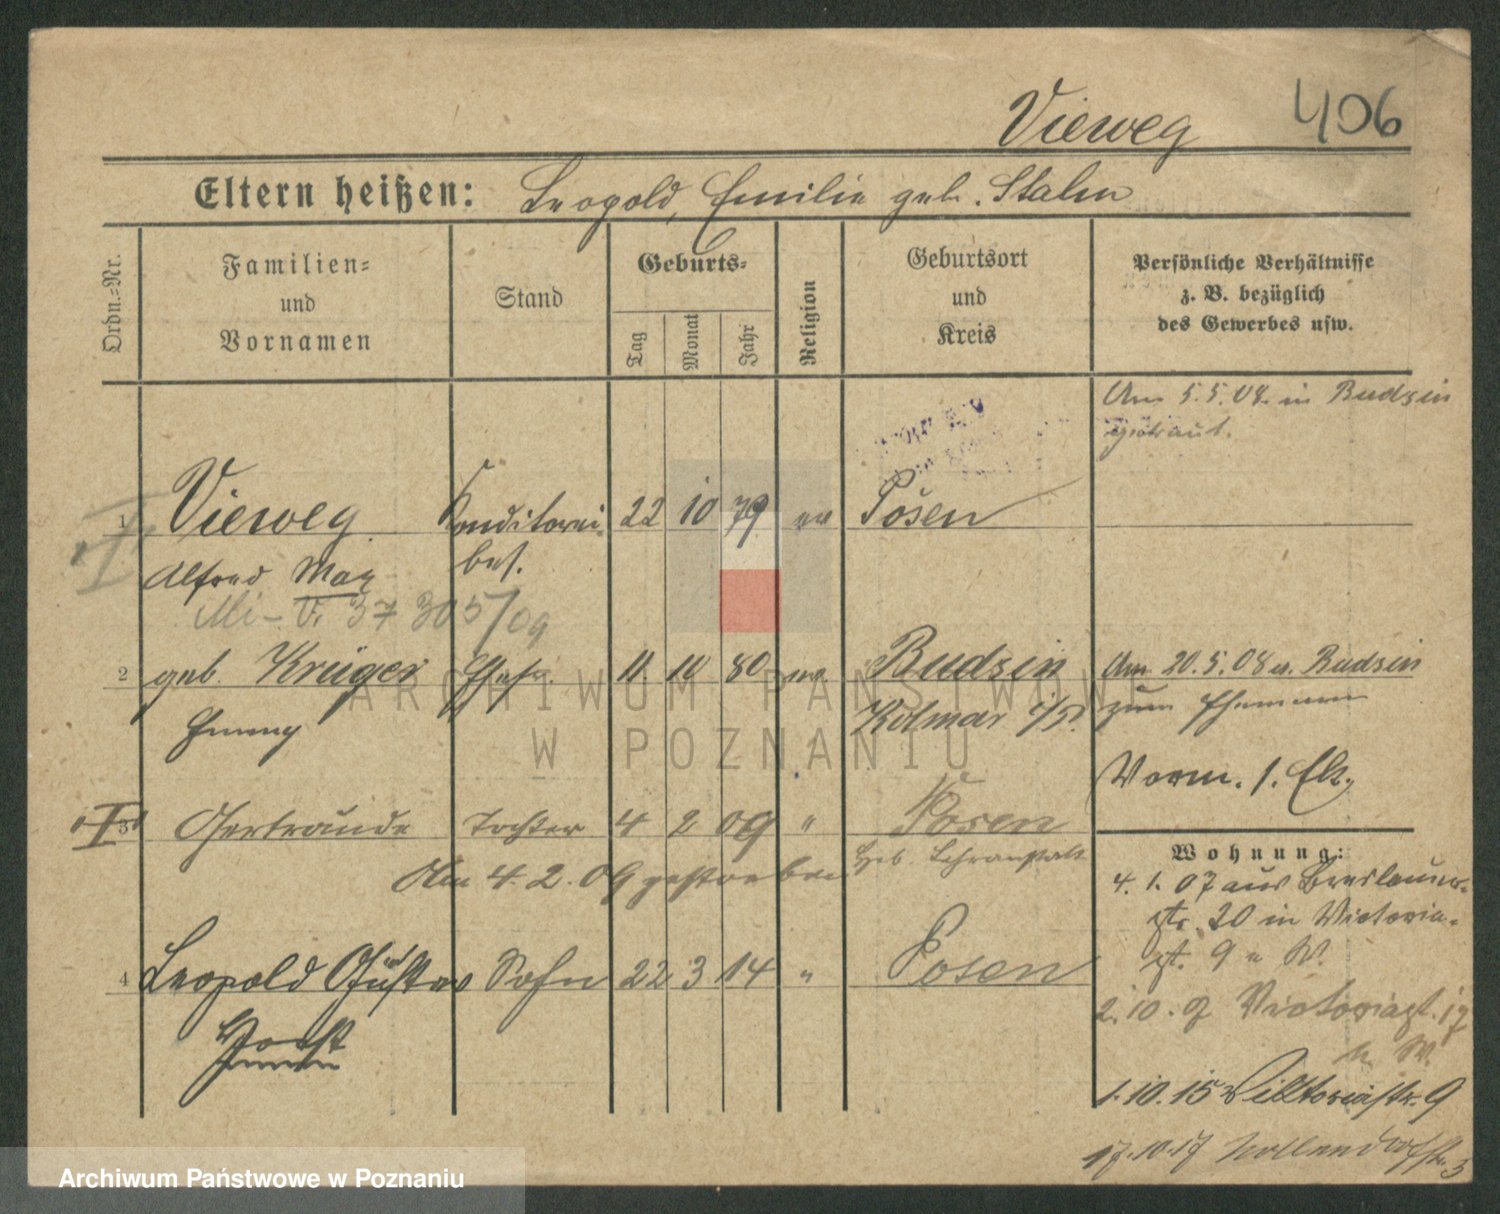 Vieweg 406
Eltern heißen: Leopold, Emilie geb. Stalm
Ordn.-Nr.
Familien-
und
Vornamen
Stand
Geburts-
Tag
Monat
Jahr
Religion
Geburtsort
und
Kreis
Persönliche Verhältnisse
z. B. bezüglich
des Gewerbes usw.
Am 5.5.08. in Budsin
getraut.
1 Vieweg Konditorei 22 10 79 ev Posen
bes.
Alfred Max
37 305/09
2 geb. Krüger Ehefr. 11. 10 80 ev. Budsin Am 20.5.08 Budsin
Kolmar i/P. zum Ehemann
Vorm. 1. Elt.
3 Gertraude Tochter 4 2 09 " Posen
Am 4.2.09 gestorben
Wohnung:
4. 1. 07 aus Breslauer-
str. 20 in Victoria-
st. 9 W.
4 Leopold Gustav Sohn 22 3 14 " Posen
Horst
2.10.9 Victoriast. 19
W.
1.10.15 Viktoriastr. 9
17.10.17 Hollendorffstr. 3
ARCHIWUM PAŃSTWOWE
W POZNANIU
Archiwum Państwowe w Poznaniu